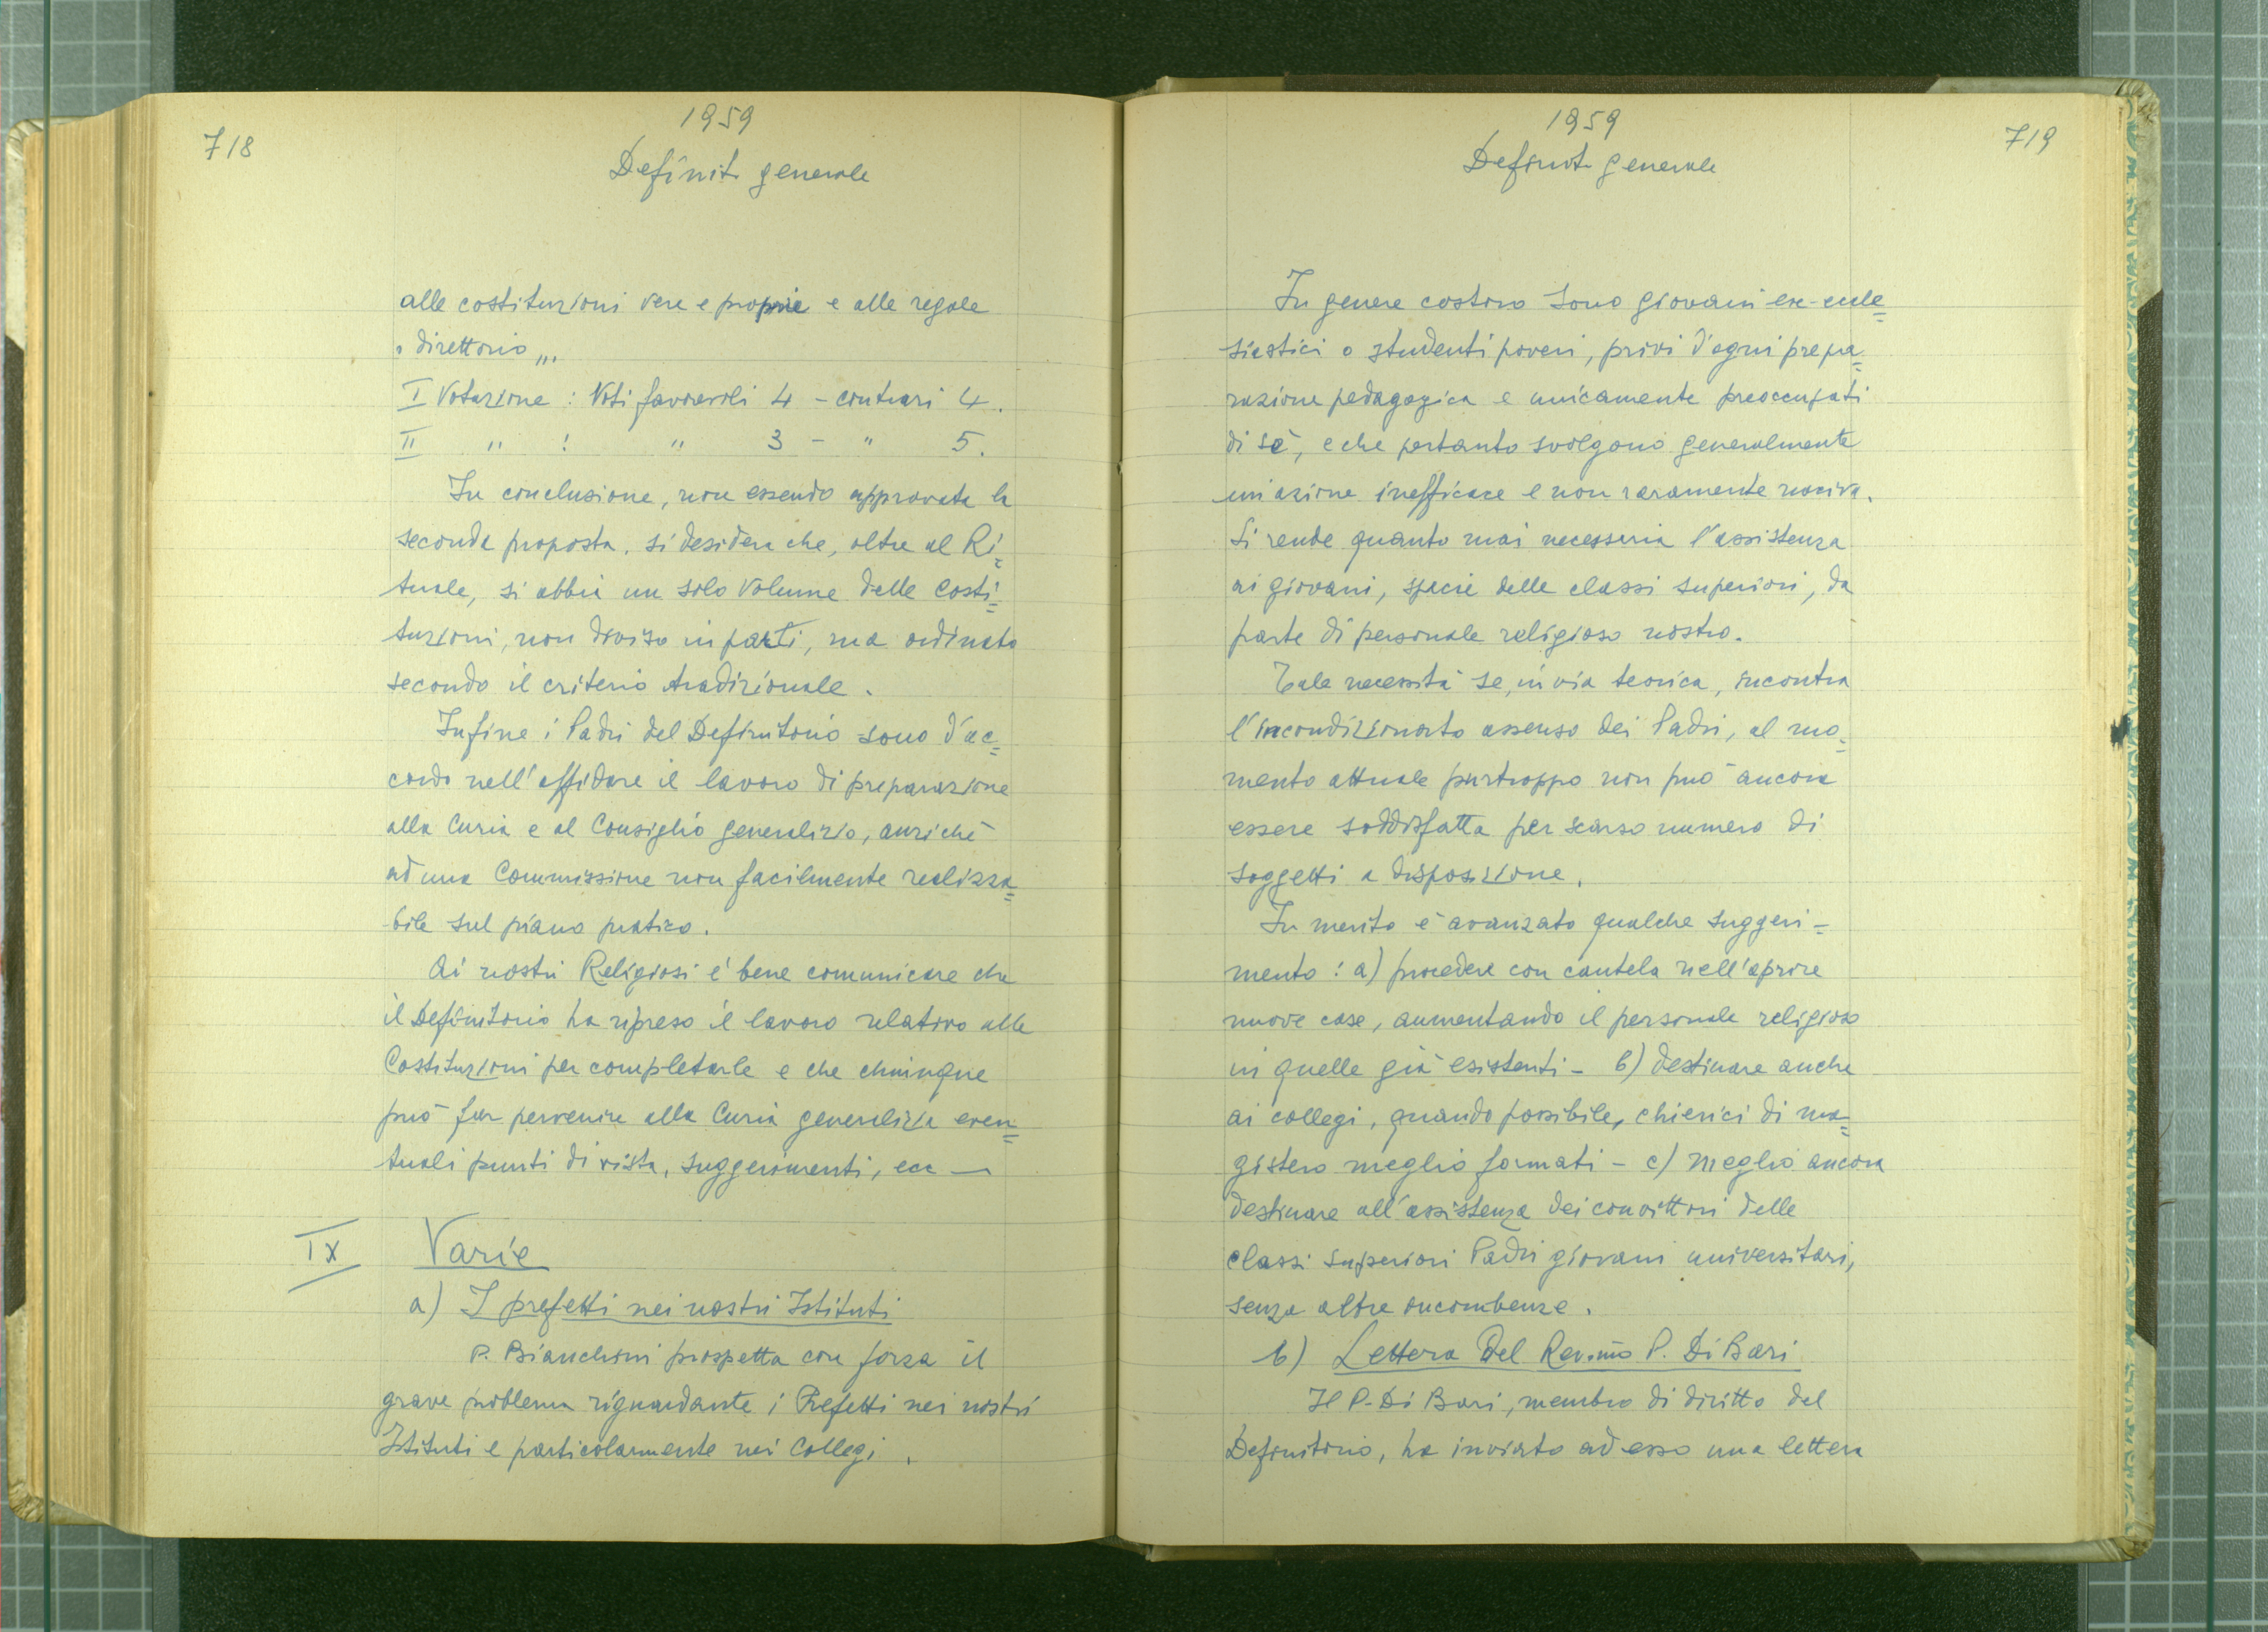 718
1959
Definit. generale
alle costituzioni vere e proprie e alle regole
o direttorio,,,
I Votazione : Voti favorevoli 4 - contrari 4.
II " : " 3 - " 5.
In conclusione, non essendo approvata la
seconda proposta, si desidera che, oltre al Ri=
tuale, si abbia un solo volume delle Costi=
tuzioni, non diviso in parti, ma ordinato
secondo il criterio tradizionale.
Infine i Padri del Definitorio sono d'ac=
cordo nell'affidare il lavoro di preparazione
alla Curia e al Consiglio generalizio, anziché
ad una Commissione non facilmente realizza=
bile sul piano pratico.
Ai nostri Religiosi è bene comunicare che
il Definitorio ha ripreso il lavoro relativo alle
Costituzioni per completarle e che chiunque
può far pervenire alla Curia generalizia even=
tuali punti di vista, suggerimenti, ecc —
IX Varie
a) I prefetti nei nostri Istituti
P. Bianchini prospetta con forza il
grave problema riguardante i Prefetti nei nostri
Istituti e particolarmente nei Collegi.
719
1959
Definit. generale
In genere costoro sono giovani ex-eccle=
siastici o studenti poveri, privi d'ogni prepa=
razione pedagogica e unicamente preoccupati
di sé, e che pertanto svolgono generalmente
un'azione inefficace e non raramente nociva.
Si rende quanto mai necessaria l'assistenza
ai giovani, specie delle classi superiori, da
parte di personale religioso nostro.
Tale necessità se, in via teorica, incontra
l'incondizionato assenso dei Padri, al mo=
mento attuale purtroppo non può ancora
essere soddisfatta per scarso numero di
soggetti a disposizione.
In merito è avanzato qualche suggeri=
mento : a) procedere con cautela nell'aprire
nuove case, aumentando il personale religioso
in quelle già esistenti - b) destinare anche
ai collegi, quando possibile, chierici di ma=
gistero meglio formati - c) meglio ancora
destinare all'assistenza dei convittori delle
classi superiori Padri giovani universitari,
senza altre incombenze.
b) Lettera del Rev.mo P. Di Bari
Il P. Di Bari, membro di diritto del
Definitorio, ha inviato ad esso una lettera